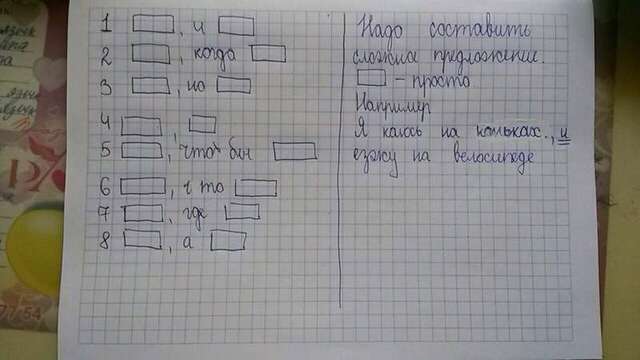 1 , и
2 , когда
3 , но
4 ,
5 , чтоб бы
6 , что
7 , где
8 , а
Надо составить
сложные предложение.
– просто
Например
Я каюсь на коньках., и
езжу на велосипеде